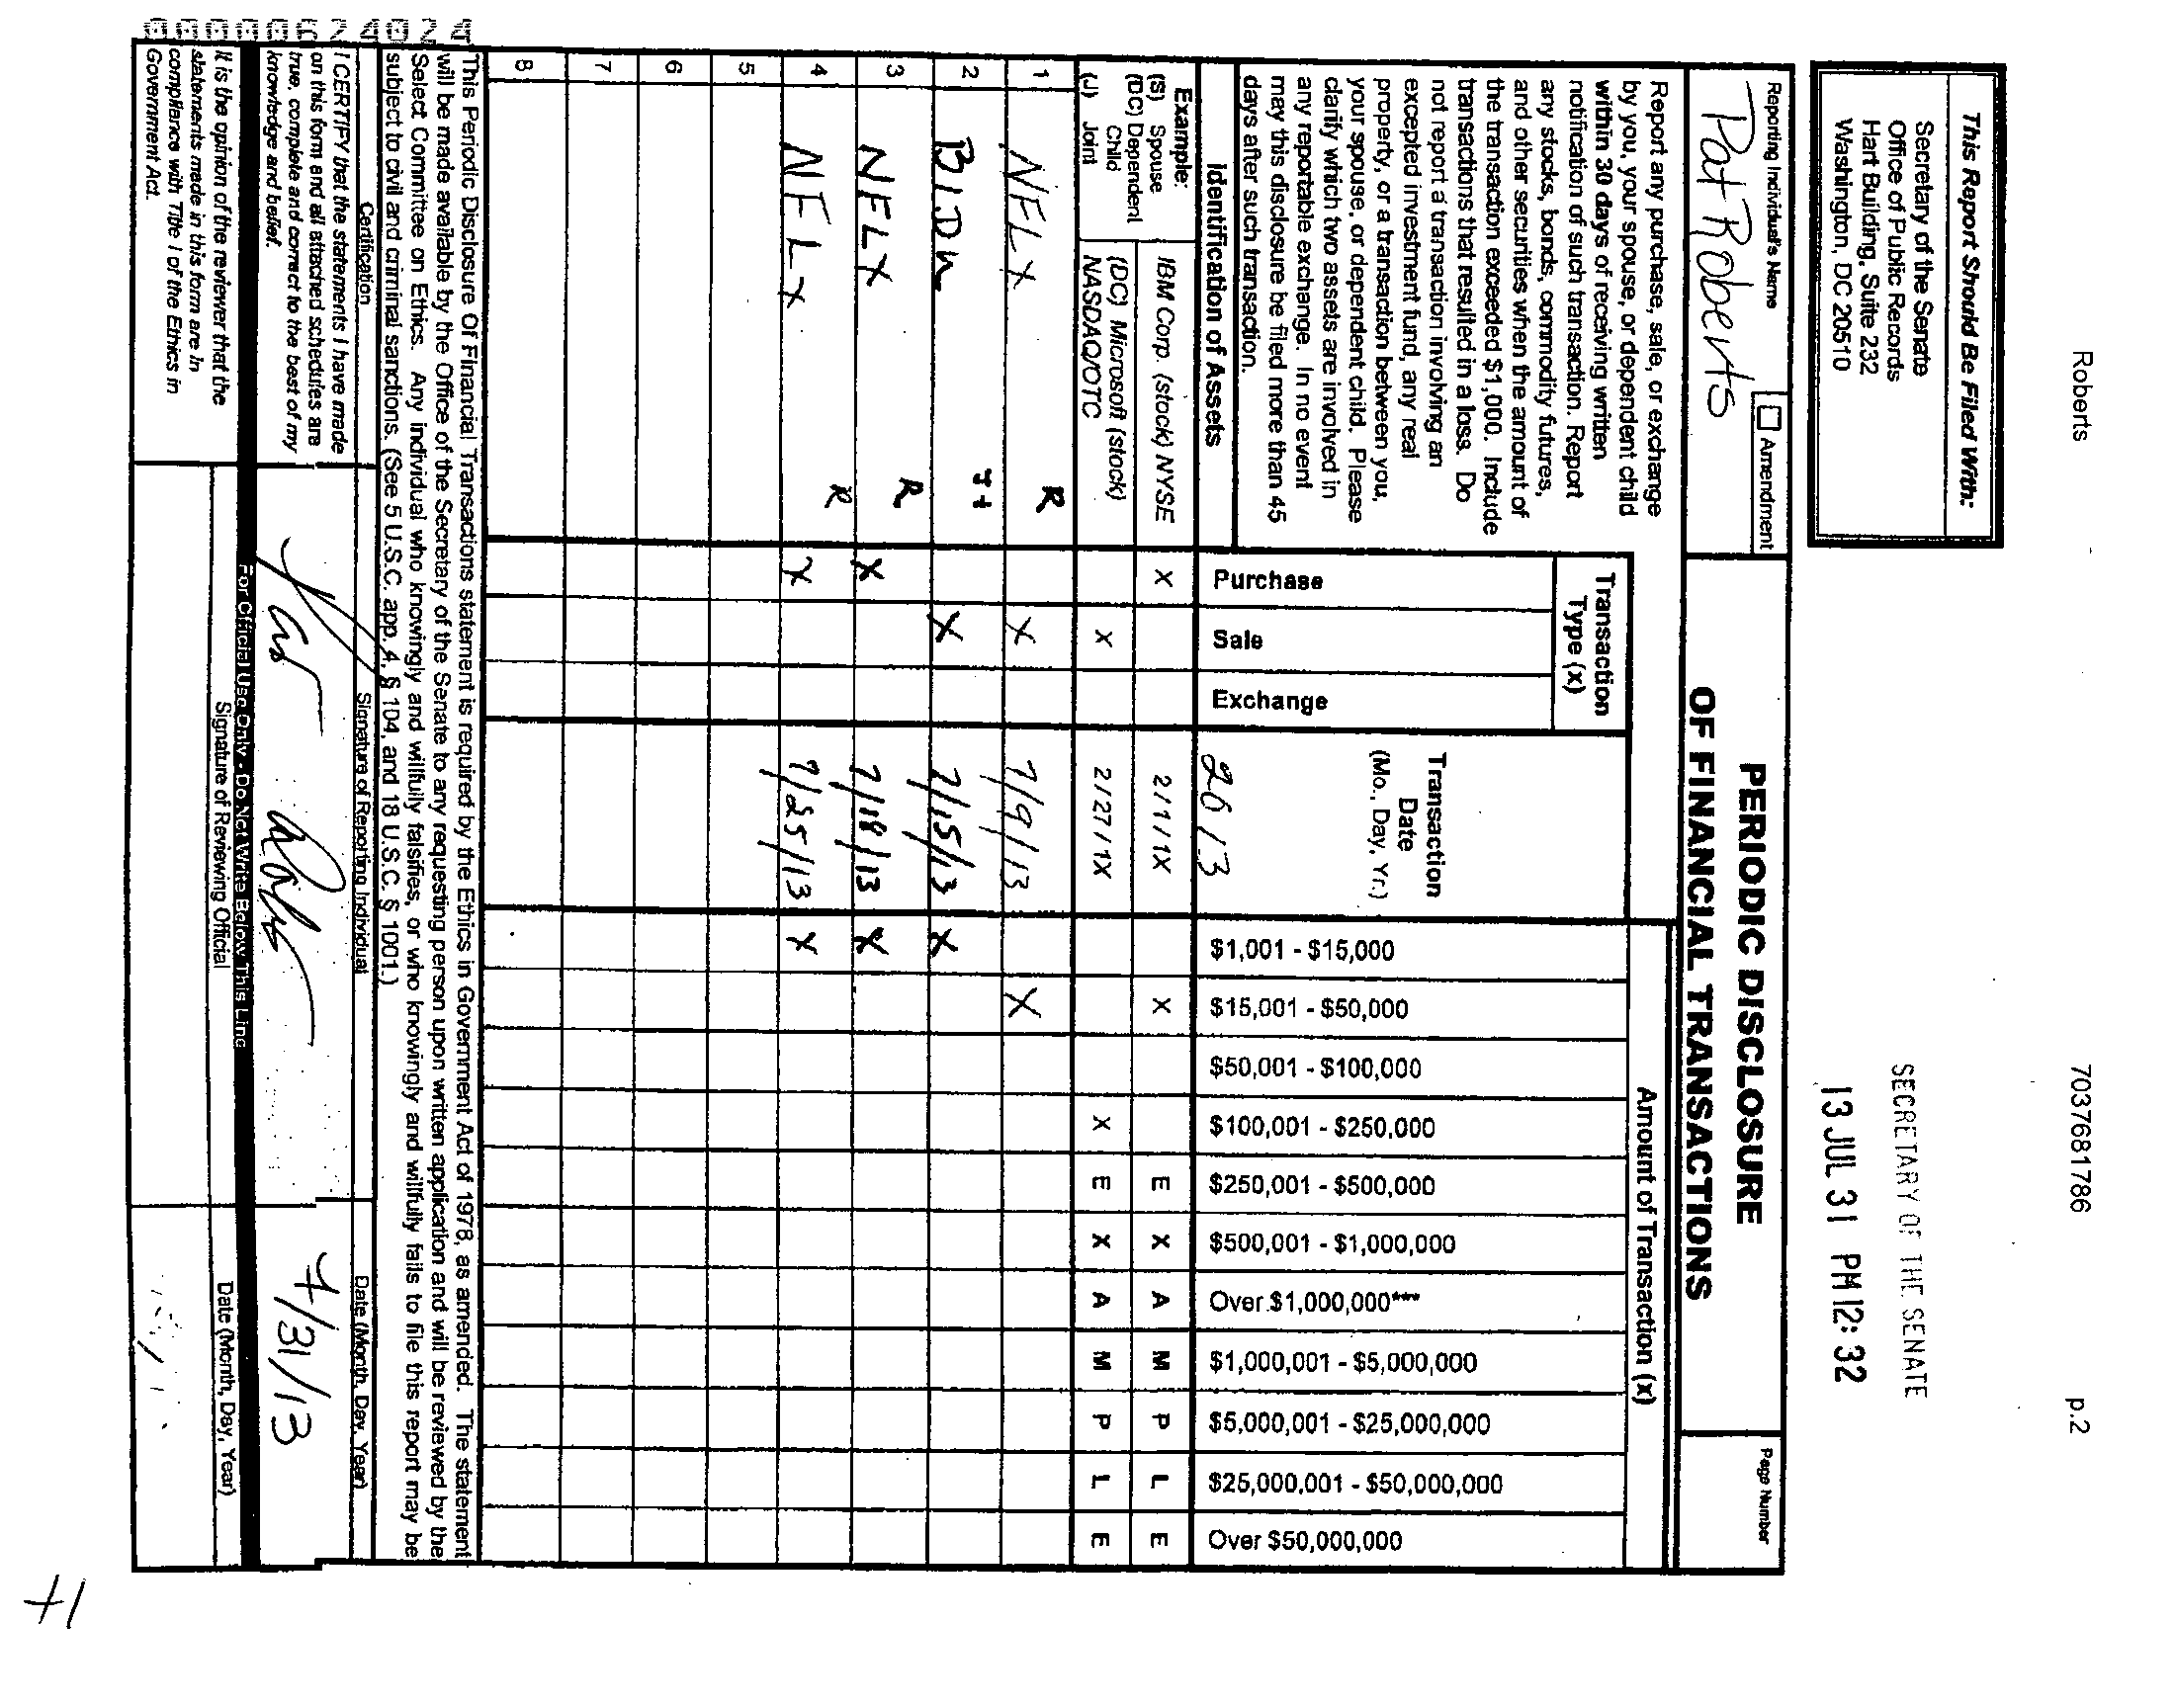 Roberts 7037681786 p.2
SECRETARY OF THE SENATE
13 JUL 31 PM 12: 32
This Report Should Be Filed With:
Secretary of the Senate
Office of Public Records
Hart Building, Suite 232
Washington, DC 20510
Reporting Individual's Name
Pat Roberts
Amendment
PERIODIC DISCLOSURE
OF FINANCIAL TRANSACTIONS
Page Number
Report any purchase, sale, or exchange
by you, your spouse, or dependent child
within 30 days of receiving written
notification of such transaction. Report
any stocks, bonds, commodity futures,
and other securities when the amount of
the transaction exceeded $1,000. Include
transactions that resulted in a loss. Do
not report a transaction involving an
excepted investment fund, any real
property, or a transaction between you,
your spouse, or dependent child. Please
clarify which two assets are involved in
any reportable exchange. In no event
may this disclosure be filed more than 45
days after such transaction.
Identification of Assets
Transaction
Type (x)
Purchase
Sale
Exchange
Transaction
Date
(Mo., Day, Yr.)
2013
Amount of Transaction (x)
$1,001 - $15,000
$15,001 - $50,000
$50,001 - $100,000
$100,001 - $250,000
$250,001 - $500,000
$500,001 - $1,000,000
Over $1,000,000***
$1,000,001 - $5,000,000
$5,000,001 - $25,000,000
$25,000,001 - $50,000,000
Over $50,000,000
Example:
(S) Spouse
(DC) Dependent
Child
(J) Joint
IBM Corp. (stock) NYSE X 2/1/1X X E X A M P L E
(DC) Microsoft (stock)
NASDAQ/OTC X 2/27/1X X E X A M P L E
1 NFLX R X 7/9/13 X
2 BIDU X 7/15/13 X
3 NFLX R X 7/18/13 X
4 NFLX R X 7/25/13 X
5
6
7
8
This Periodic Disclosure Of Financial Transactions statement is required by the Ethics in Government Act of 1978, as amended. The statement
will be made available by the Office of the Secretary of the Senate to any requesting person upon written application and will be reviewed by the
Select Committee on Ethics. Any individual who knowingly and willfully falsifies, or who knowingly and willfully fails to file this report may be
subject to civil and criminal sanctions. (See 5 U.S.C. app. 4, § 104, and 18 U.S.C. § 1001.)
Certification
Signature of Reporting Individual
Date (Month, Day, Year)
I CERTIFY that the statements I have made
on this form and all attached schedules are
true, complete and correct to the best of my
knowledge and belief.
7/31/13
For Official Use Only - Do Not Write Below This Line
It is the opinion of the reviewer that the
statements made in this form are in
compliance with Title I of the Ethics in
Government Act.
Signature of Reviewing Official
Date (Month, Day, Year)